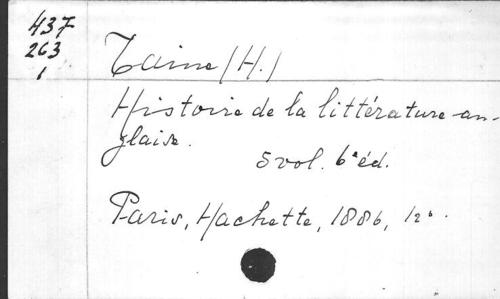 437
263
1
Taine (H.)
Histoire de la littérature an-
glaise.
5 vol. 6e éd.
Paris, Hachette, 1886, 12°.